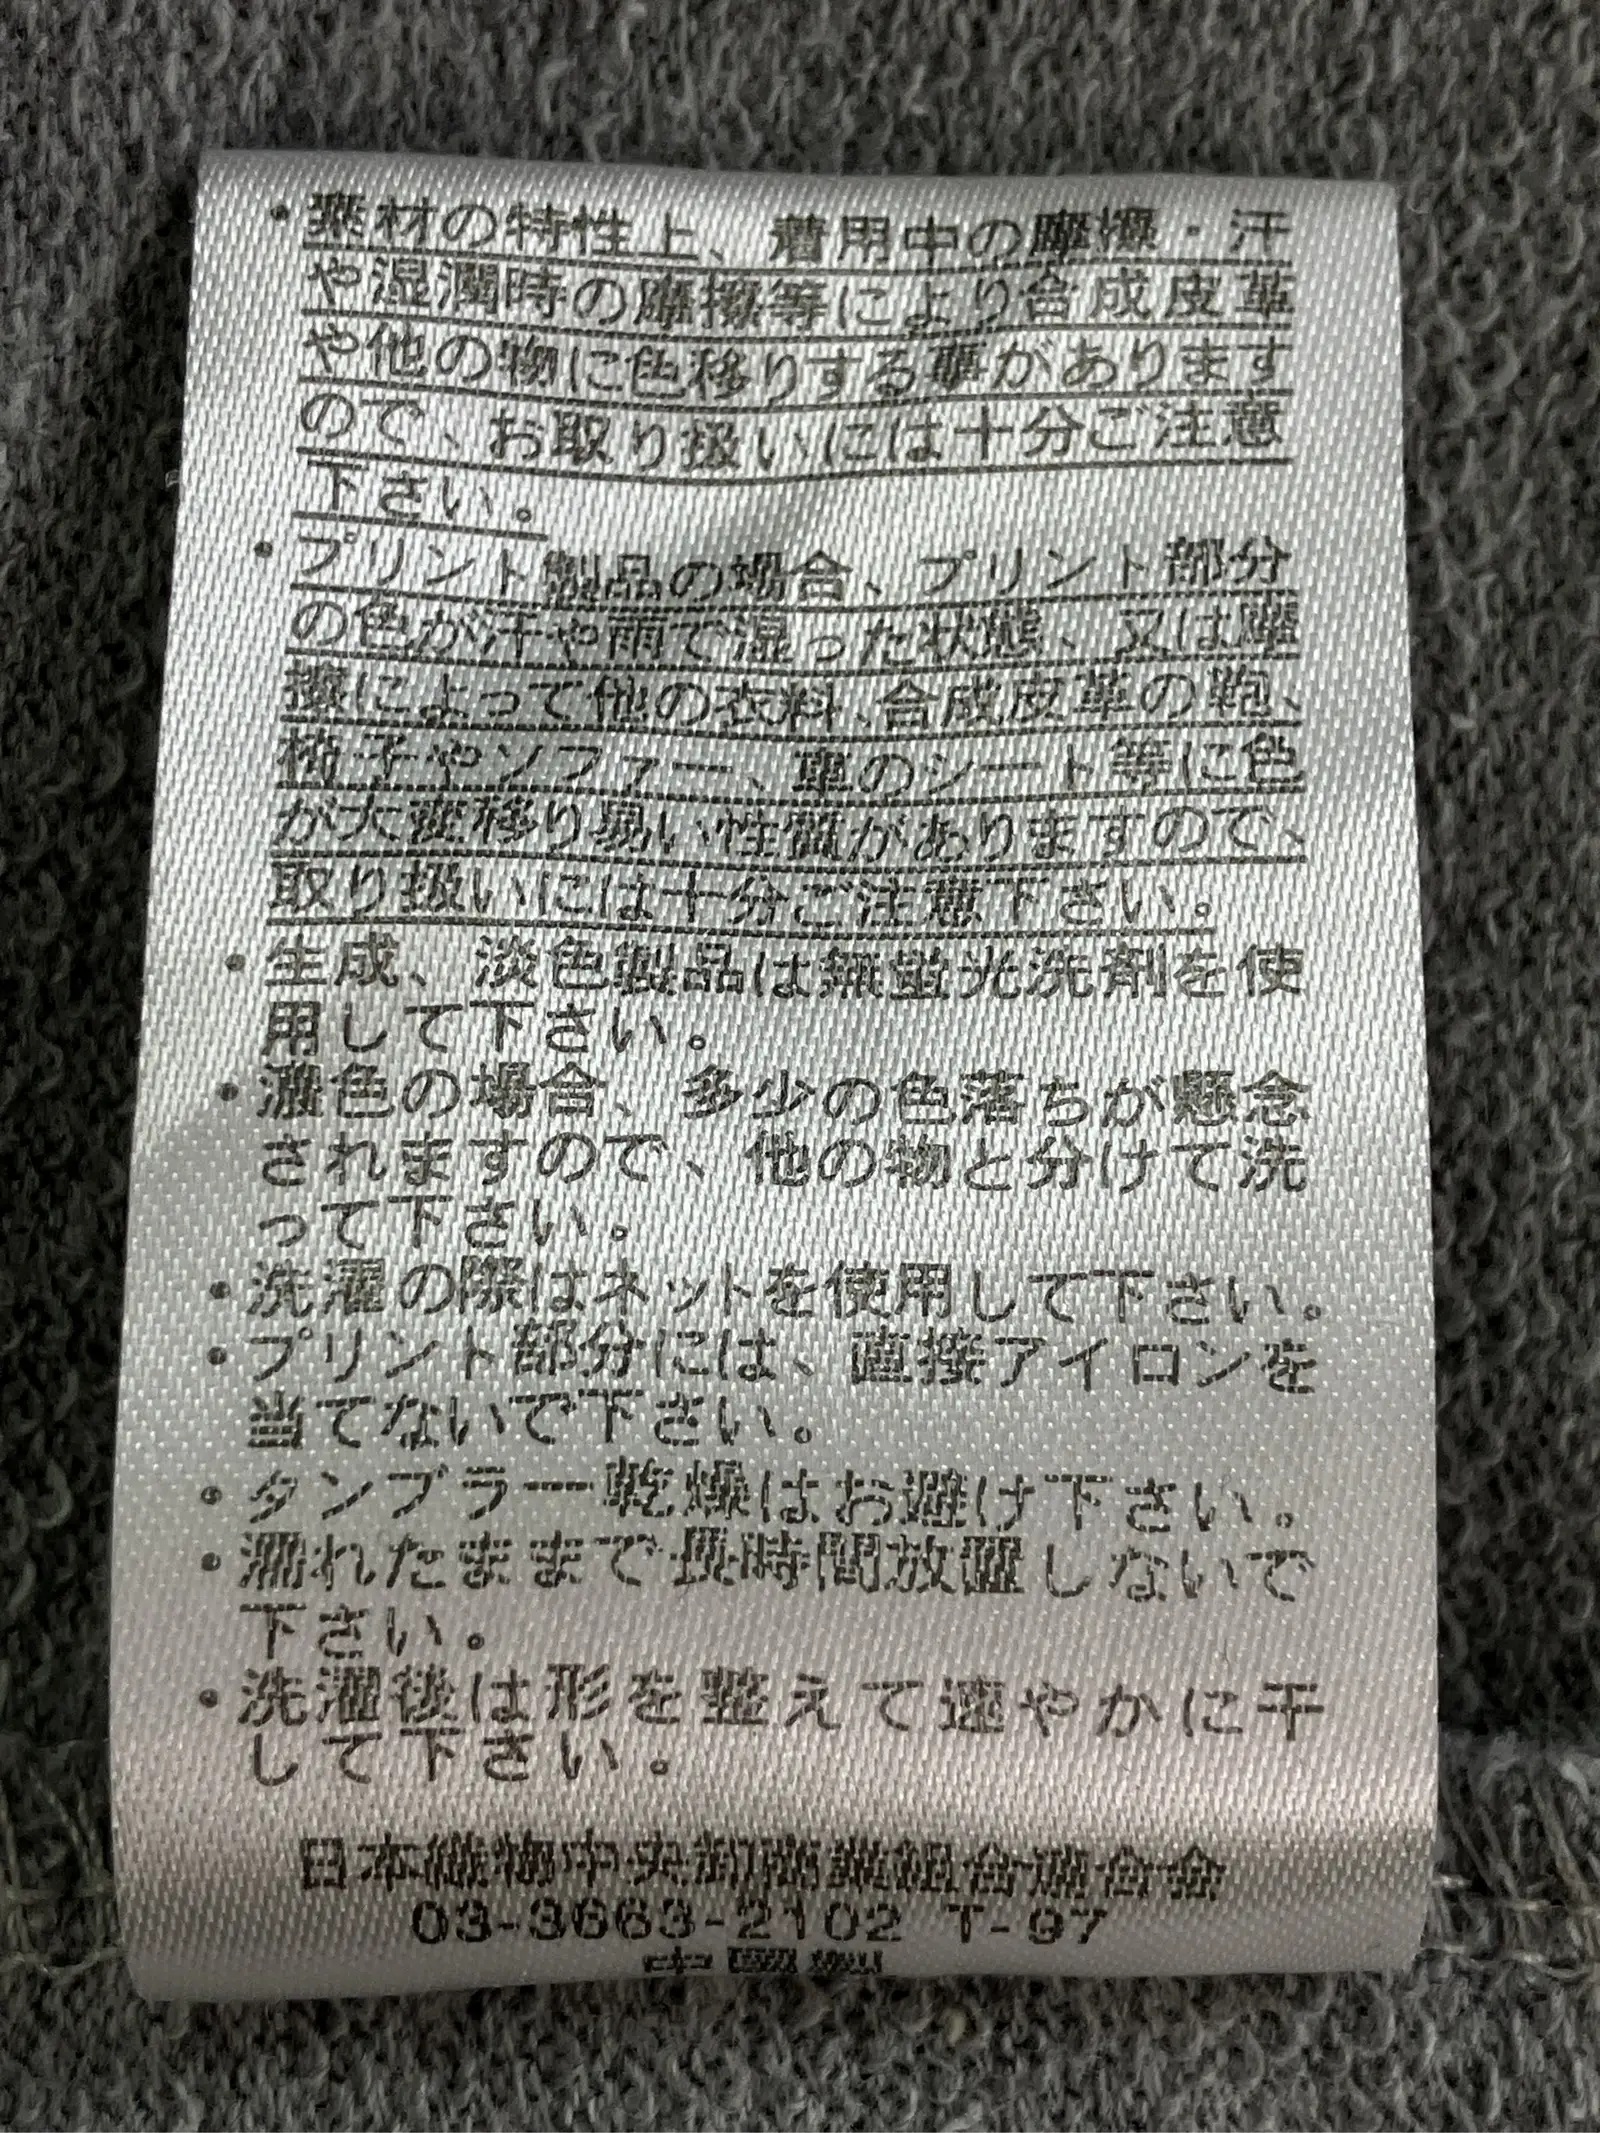 ・素材の特性上、着用中の摩擦・汗
や湿潤時の摩擦等により合成皮革
や他の物に色移りする事があります
ので、お取り扱いには十分ご注意
下さい。
・プリント製品の場合、プリント部分
の色が汗や雨で湿った状態、又は摩
擦によって他の衣料、合成皮革の鞄、
椅子やソファー、車のシート等に色
が大変移り易い性質がありますので、
取り扱いには十分ご注意下さい。
・生成、淡色製品は無蛍光洗剤を使
用して下さい。
・濃色の場合、多少の色落ちが懸念
されますので、他の物と分けて洗
って下さい。
・洗濯の際はネットを使用して下さい。
・プリント部分には、直接アイロンを
当てないで下さい。
・タンブラー乾燥はお避け下さい。
・濡れたままで長時間放置しないで
下さい。
・洗濯後は形を整えて速やかに干
して下さい。
日本織物中央卸商業組合連合会
03-3663-2102 T-97
中国製